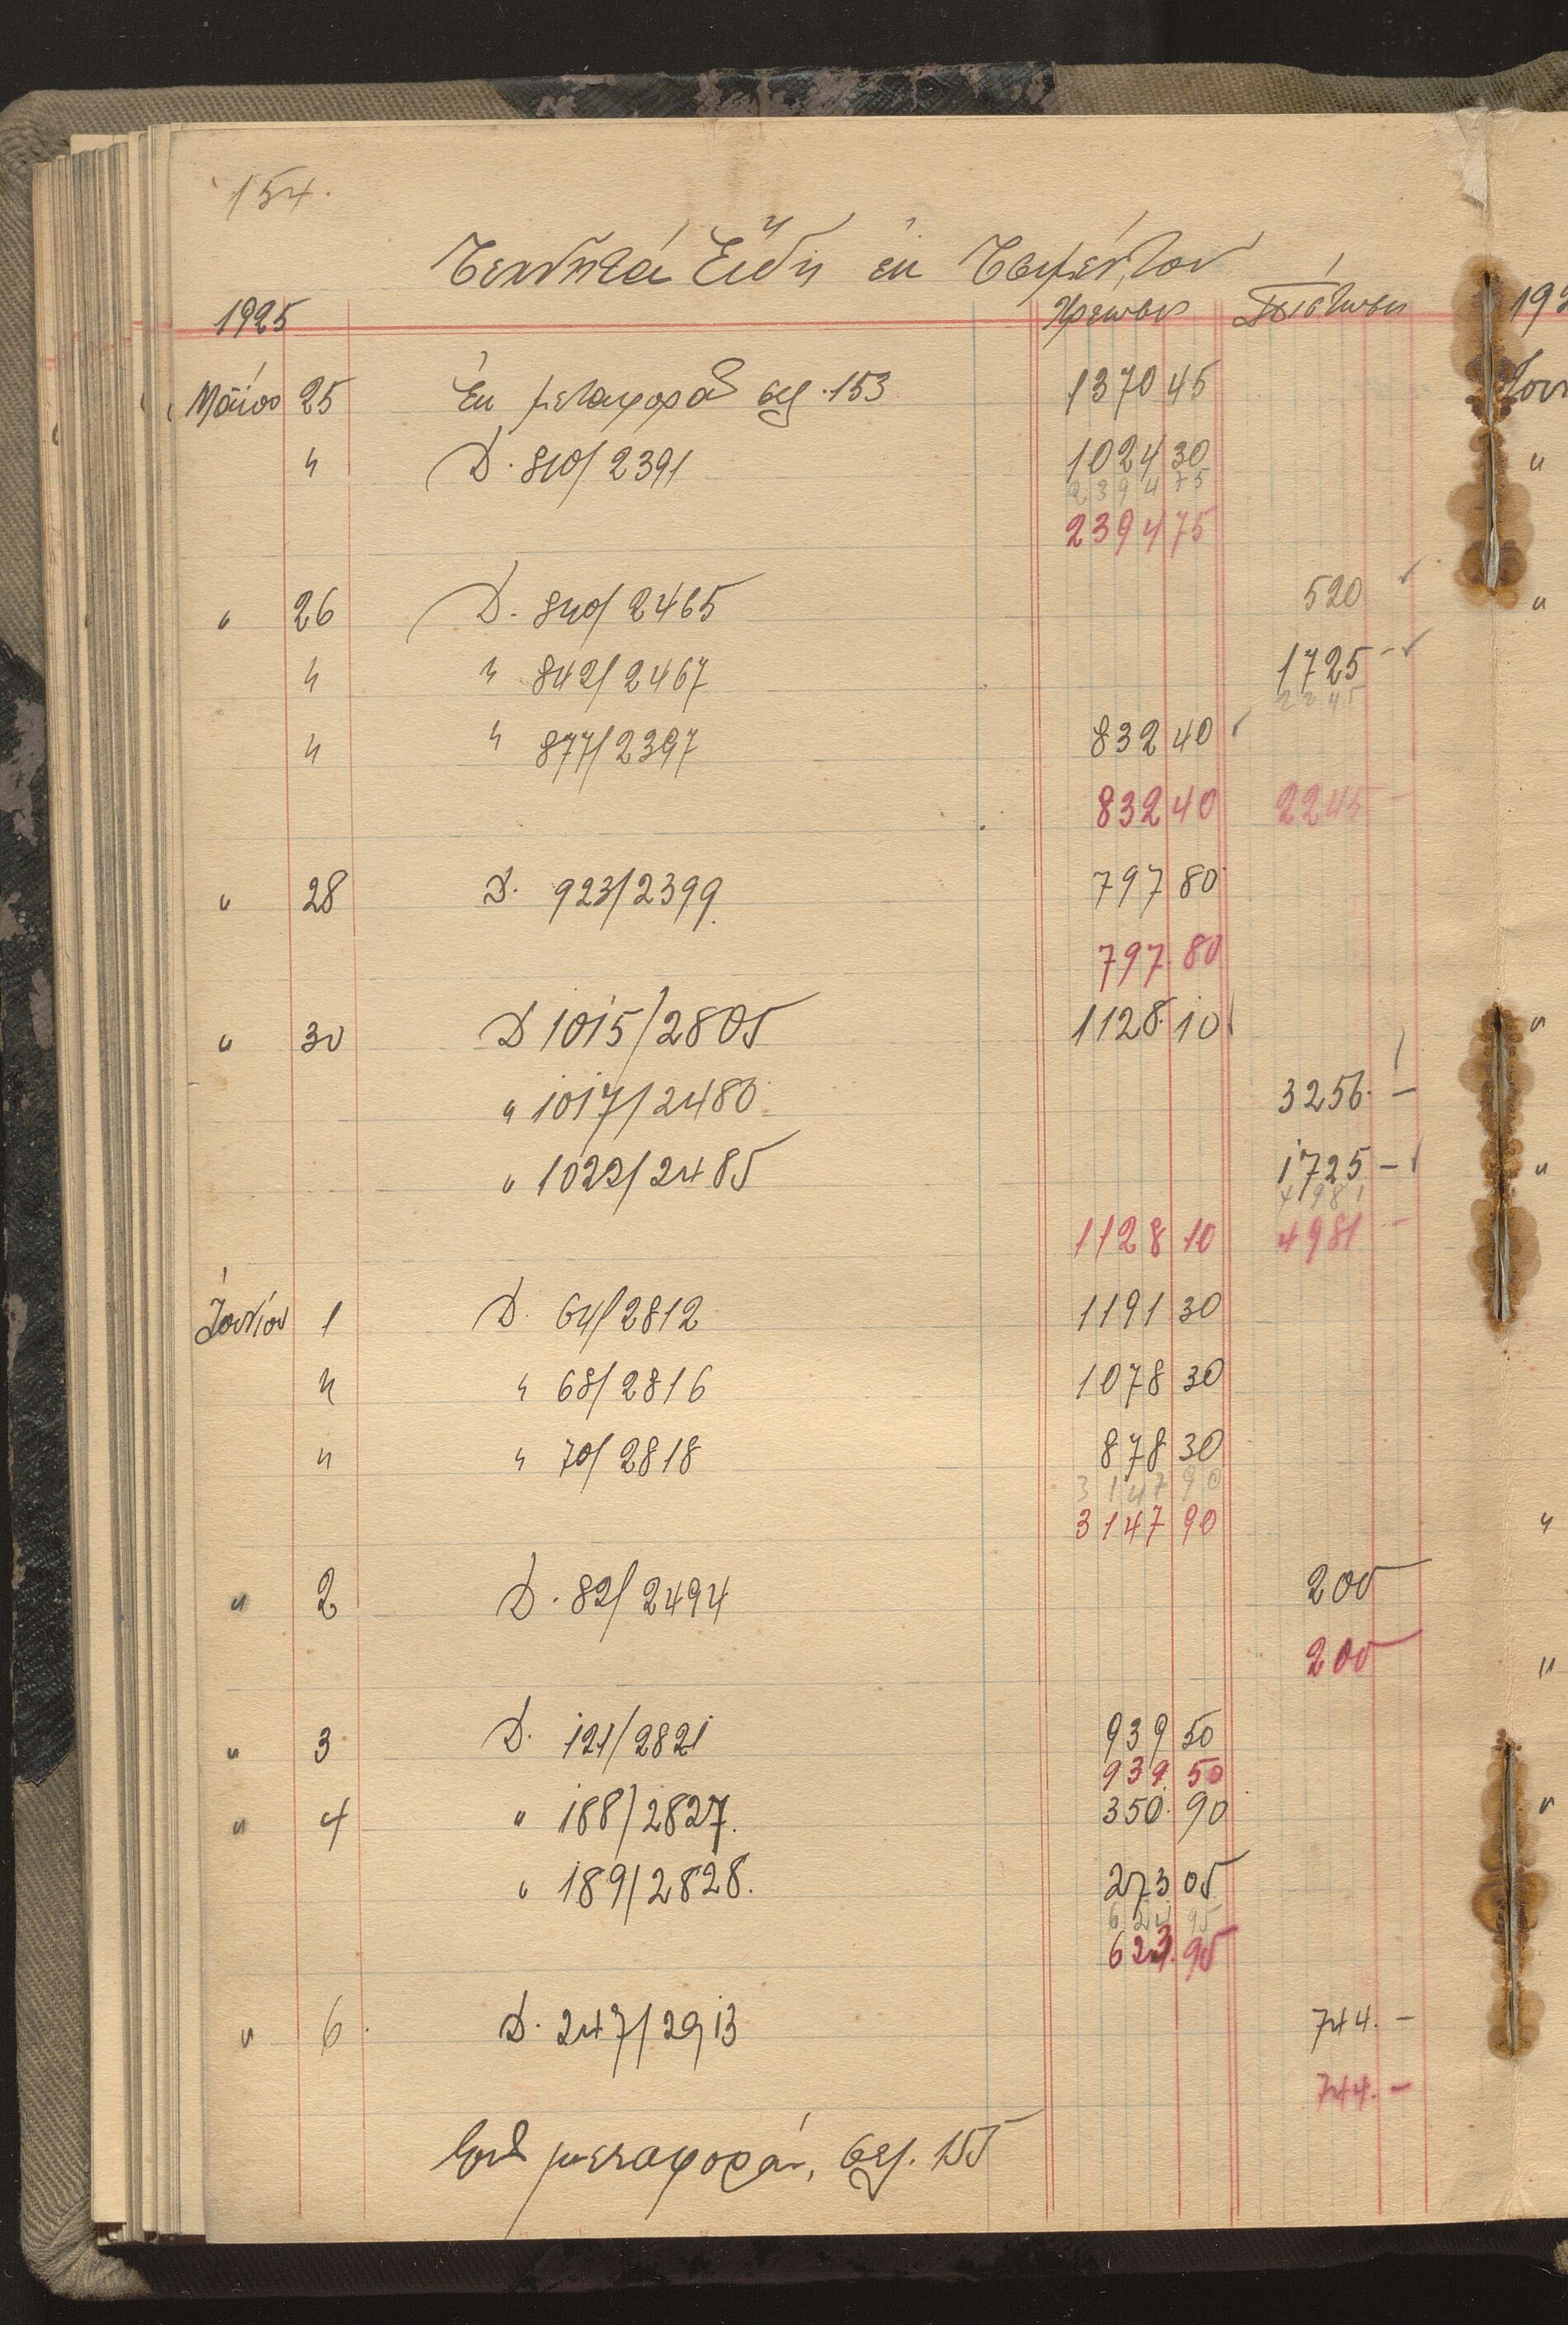 154.
Τεχνητά Είδη εκ Τσιμέντου
1925 Χρέωσις Πίστωσις
Μάϊου 25 Εκ μεταφοράς σελ. 153 1370 45
" D. 810/2391 1024 30
2394 75
2394 75
" 26 D. 840/2465 520
" " 842/2467 1725 -
2245
" " 877/2397 832 40
832 40 2245 -
" 28 D. 923/2399 797 80
797 80
" 30 D 1015/2805 1128 10
" 1017/2480 3256. -
" 1022/2485 1725 -
4981
1128 10 4981 -
Ιουνίου 1 D. 64/2812 1191 30
" " 68/2816 1078 30
" " 70/2818 878 30
3147 90
3147 90
" 2 D. 82/2494 200
200
" 3 D. 121/2821 939 50
939 50
" 4 " 188/2827. 350. 90
" 189/2828. 273 05
95
623. 95
" 6. D. 247/2913 744. -
744. -
μεταφοράν, σελ. 155
193
"
"
"
"
"
"
"